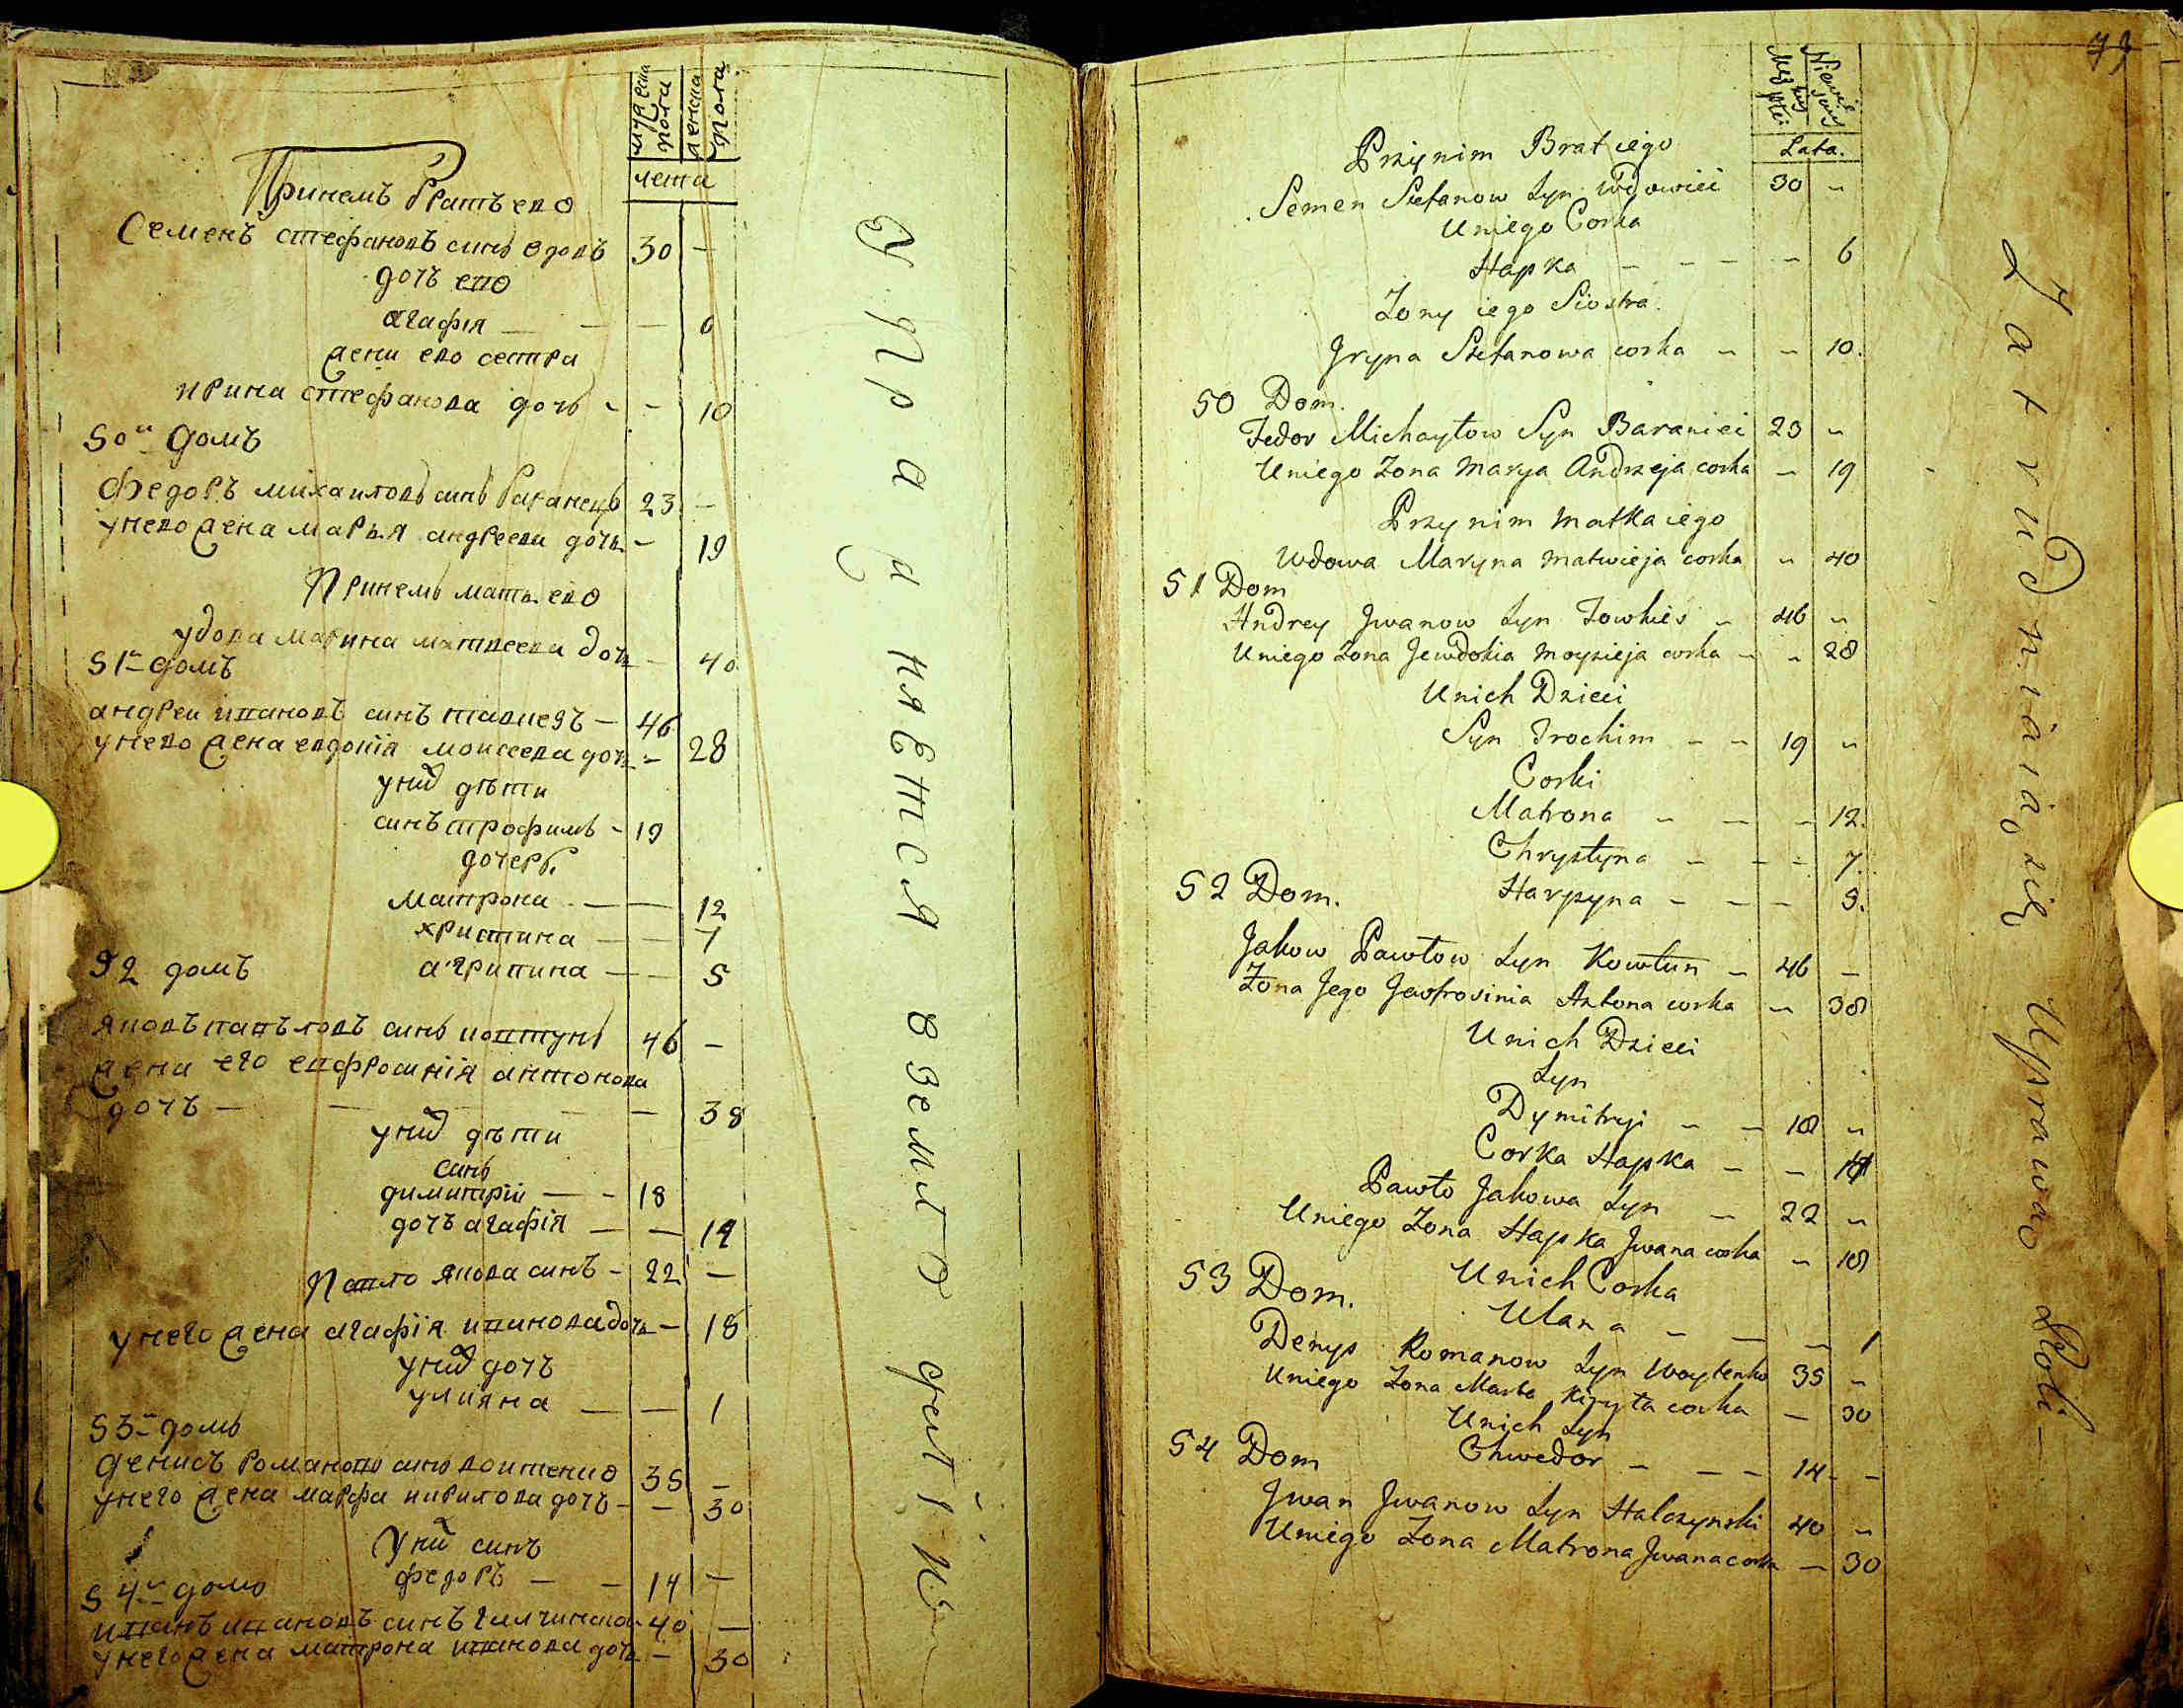 мужеска пола
женска пола
лета
Принемъ братъ его
Семенъ стефановъ синъ вдовъ 30 -
дочъ его
агафія - - - 6
жени его сестра
ирина стефанова дочь - - 10
50й домъ
Федоръ михаиловъ синъ баранецъ 23 -
у него жена марья андреева дочь - 19
Принемъ мать его
удова марина матвеева дочь - 40
51й домъ
андреи ивановъ синъ товкесъ - 46
у него жена евдокія моисеева дочь - 28
у них дѣти
синъ трофимъ - 19
дочерѣ
матрона - - 12
христина - - 7
52 домъ
агрипина - - 5
яковъ павъловъ синъ ковтунъ 46 -
жена его евфросинія антонова
дочъ - - - - 38
у них дѣти
синъ
димитрій - - 18
дочъ агафія - - 14
Павло якова синъ - 22 -
у него жена агафія иванова дочь - 18
у них дочъ
улияна - - 1
53й домъ
денисъ романовъ синъ воитенко 35 -
у него жена марфа кирилова дочъ - - 30
у них синъ
федоръ - - 14 -
54й домъ
иванъ ивановъ синъ галчински - 40 -
у него жена матрона иванова дочь - 30
Упражняется в земледелїи
73
Męż płci
Niewieściej
Lata.
Przy nim Brat iego
Semen Stefanow Syn Wdowiec 30 -
U niego Corka
Hapka - - - - 6
Zony iego Siostra
Jryna Stefanowa corka - - 10.
50 Dom.
Fedor Michayłow Syn Baraniec 23 -
U niego Zona Marya Andrzeja corka - 19
Przy nim Matka iego
Wdowa Maryna Matwieja corka - 40
51 Dom
Andrey Jwanow Syn Towkies - 46 -
U niego Zona Jewdokia Moysieja corka - - 28
U nich Dzieci
Syn Trochim - - 19 -
Corki
Matrona - - - 12.
Chrystyna - - - 7.
52 Dom.
Harpyna - - - 5.
Jakow Pawłow Syn Kowtun - 46 -
Zona Jego Jewfrosinia Antona corka - 38
U nich Dzieci
Syn
Dymitryi - - 18 -
Corka Hapka - - 14
Pawło Jakowa Syn - 22 -
U niego Zona Hapka Jwana corka - 18
U nich Corka
53 Dom.
Ulana - - - 1
Denys Romanow Syn Woytenko 35 -
U niego Zona Marta Kiryła corka - 30
U nich Syn
54 Dom
Chwedor - - - 14 - -
Jwan Jwanow Syn Halczynski 40 -
U niego Zona Matrona Jwana corka - 30
Zatrudniaią się Uprawą Roli -